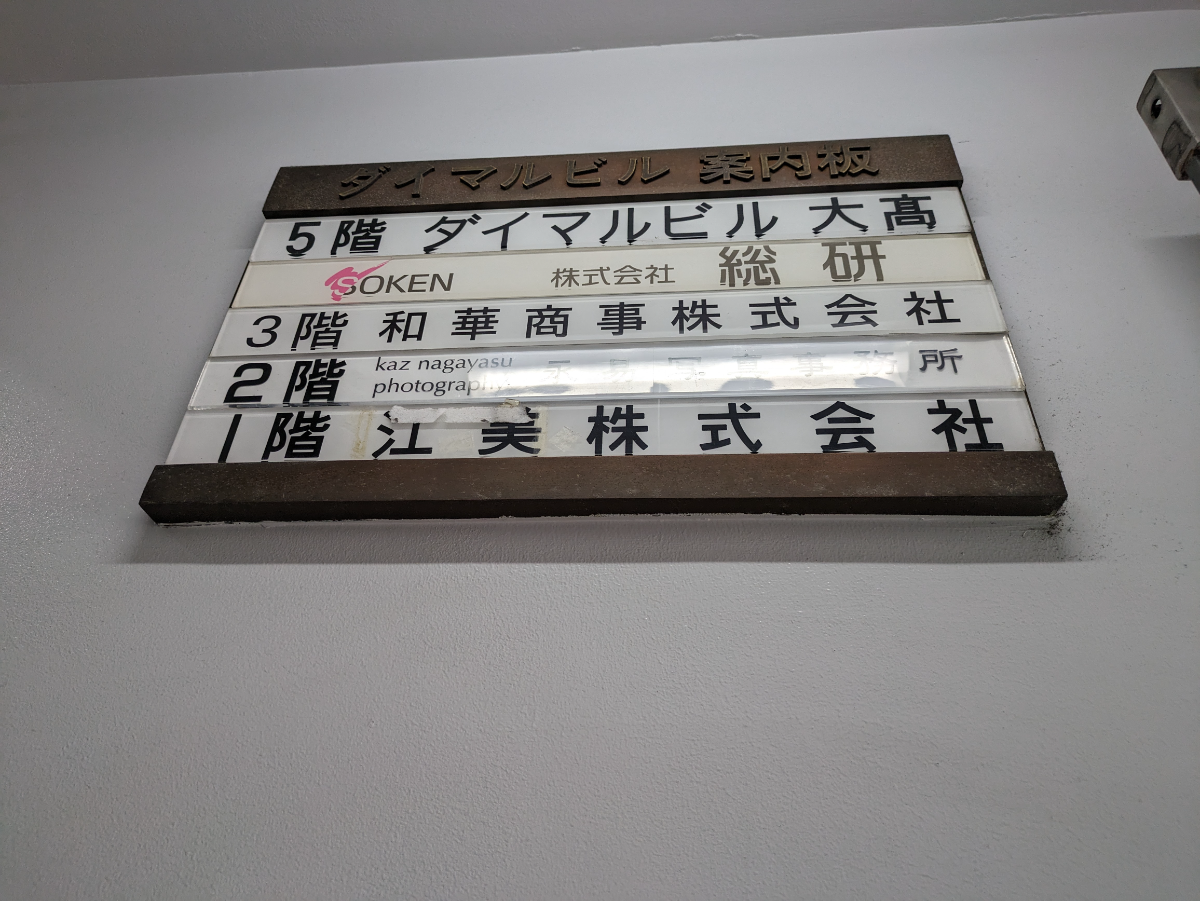 ダイマルビル 案内板
5階 ダイマルビル 大髙
SOKEN 株式会社 総研
3階 和華商事株式会社
2階 kaz nagayasu photography 永易写真事務所
1階 江美株式会社